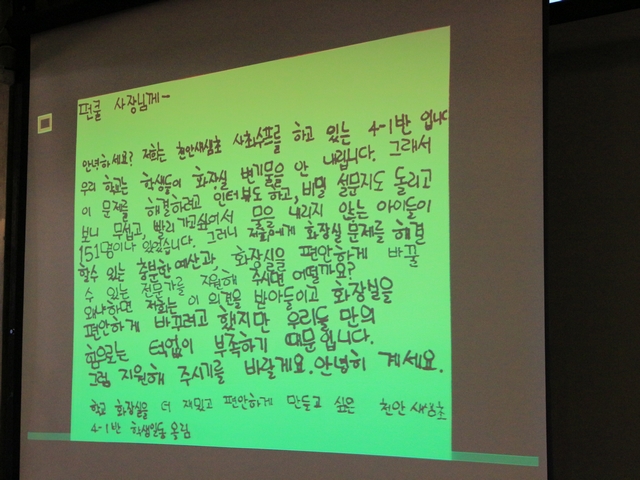 펀쿨 사장님께~
안녕하세요? 저희는 천안새샘초 사회수프를 하고 있는 4-1반 입니다
우리 학교는 학생들이 화장실 변기물을 안 내립니다. 그래서
이 문제를 해결하려고 인터뷰도 하고, 비밀 설문지도 돌리고
보니 무섭고, 빨리 가고싶어서 물을 내리지 않는 아이들이
151명이나 있었습니다. 그러니 저희에게 화장실 문제를 해결
할수 있는 충분한 예산과, 화장실을 편안하게 바꿀
수 있는 전문가를 지원해 주시면 어떨까요?
왜냐하면 저희는 이 의견을 받아들이고 화장실을
편안하게 바꾸려고 했지만 우리들 만의
힘으로는 턱없이 부족하기 때문입니다.
그럼 지원해 주시기를 바랄게요. 안녕히 계세요.
학교 화장실을 더 재밌고 편안하게 만들고 싶은 천안새샘초
4-1반 학생일동 올림